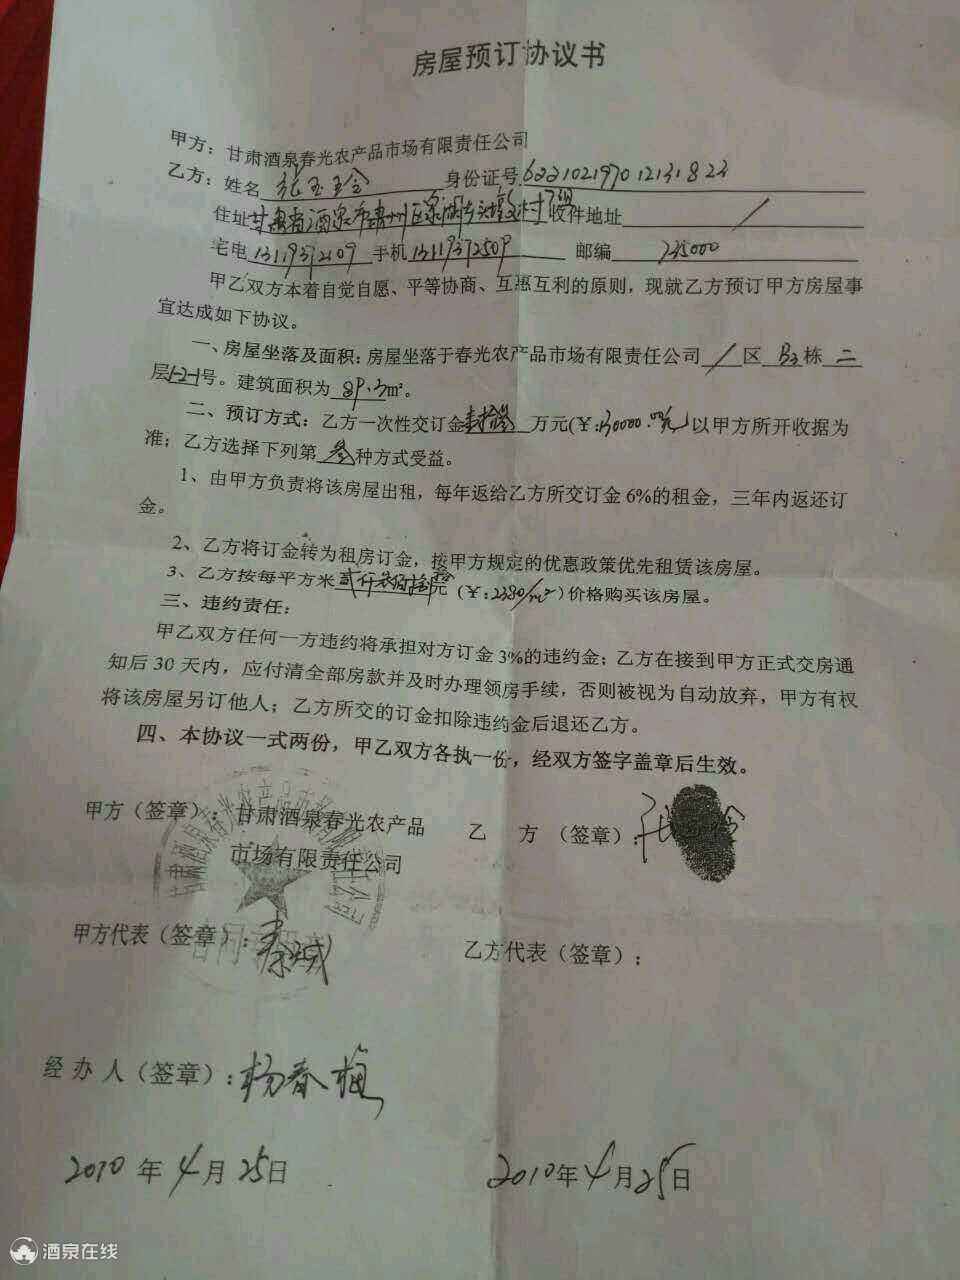 房屋预订协议书
甲方：甘肃酒泉春光农产品市场有限责任公司
乙方：姓名 张玉玲 身份证号 622102197012131823
住址 甘肃省酒泉市肃州区泉湖乡 收件地址 /
宅电 手机 邮编 735000
甲乙双方本着自觉自愿、平等协商、互惠互利的原则，现就乙方预订甲方房屋事
宜达成如下协议。
一、房屋坐落及面积：房屋坐落于春光农产品市场有限责任公司 / 区 B3 栋 二
层1-2-1号。建筑面积为 89.3m²。
二、预订方式：乙方一次性交订金 万元(¥:30000.00元)以甲方所开收据为
准；乙方选择下列第 叁 种方式受益。
1、由甲方负责将该房屋出租，每年返给乙方所交订金6%的租金，三年内返还订
金。
2、乙方将订金转为租房订金，按甲方规定的优惠政策优先租赁该房屋。
3、乙方按每平方米 贰仟叁佰捌拾元 (¥:2380/m²)价格购买该房屋。
三、违约责任：
甲乙双方任何一方违约将承担对方订金3%的违约金；乙方在接到甲方正式交房通
知后30天内，应付清全部房款并及时办理领房手续，否则被视为自动放弃，甲方有权
将该房屋另订他人；乙方所交的订金扣除违约金后退还乙方。
四、本协议一式两份，甲乙双方各执一份，经双方签字盖章后生效。
甲方（签章）：甘肃酒泉春光农产品 乙 方（签章）：
市场有限责任公司
甲方代表（签章）：秦斌 乙方代表（签章）：
经办人（签章）：杨春梅
2010年4月25日 2010年4月25日
酒泉在线